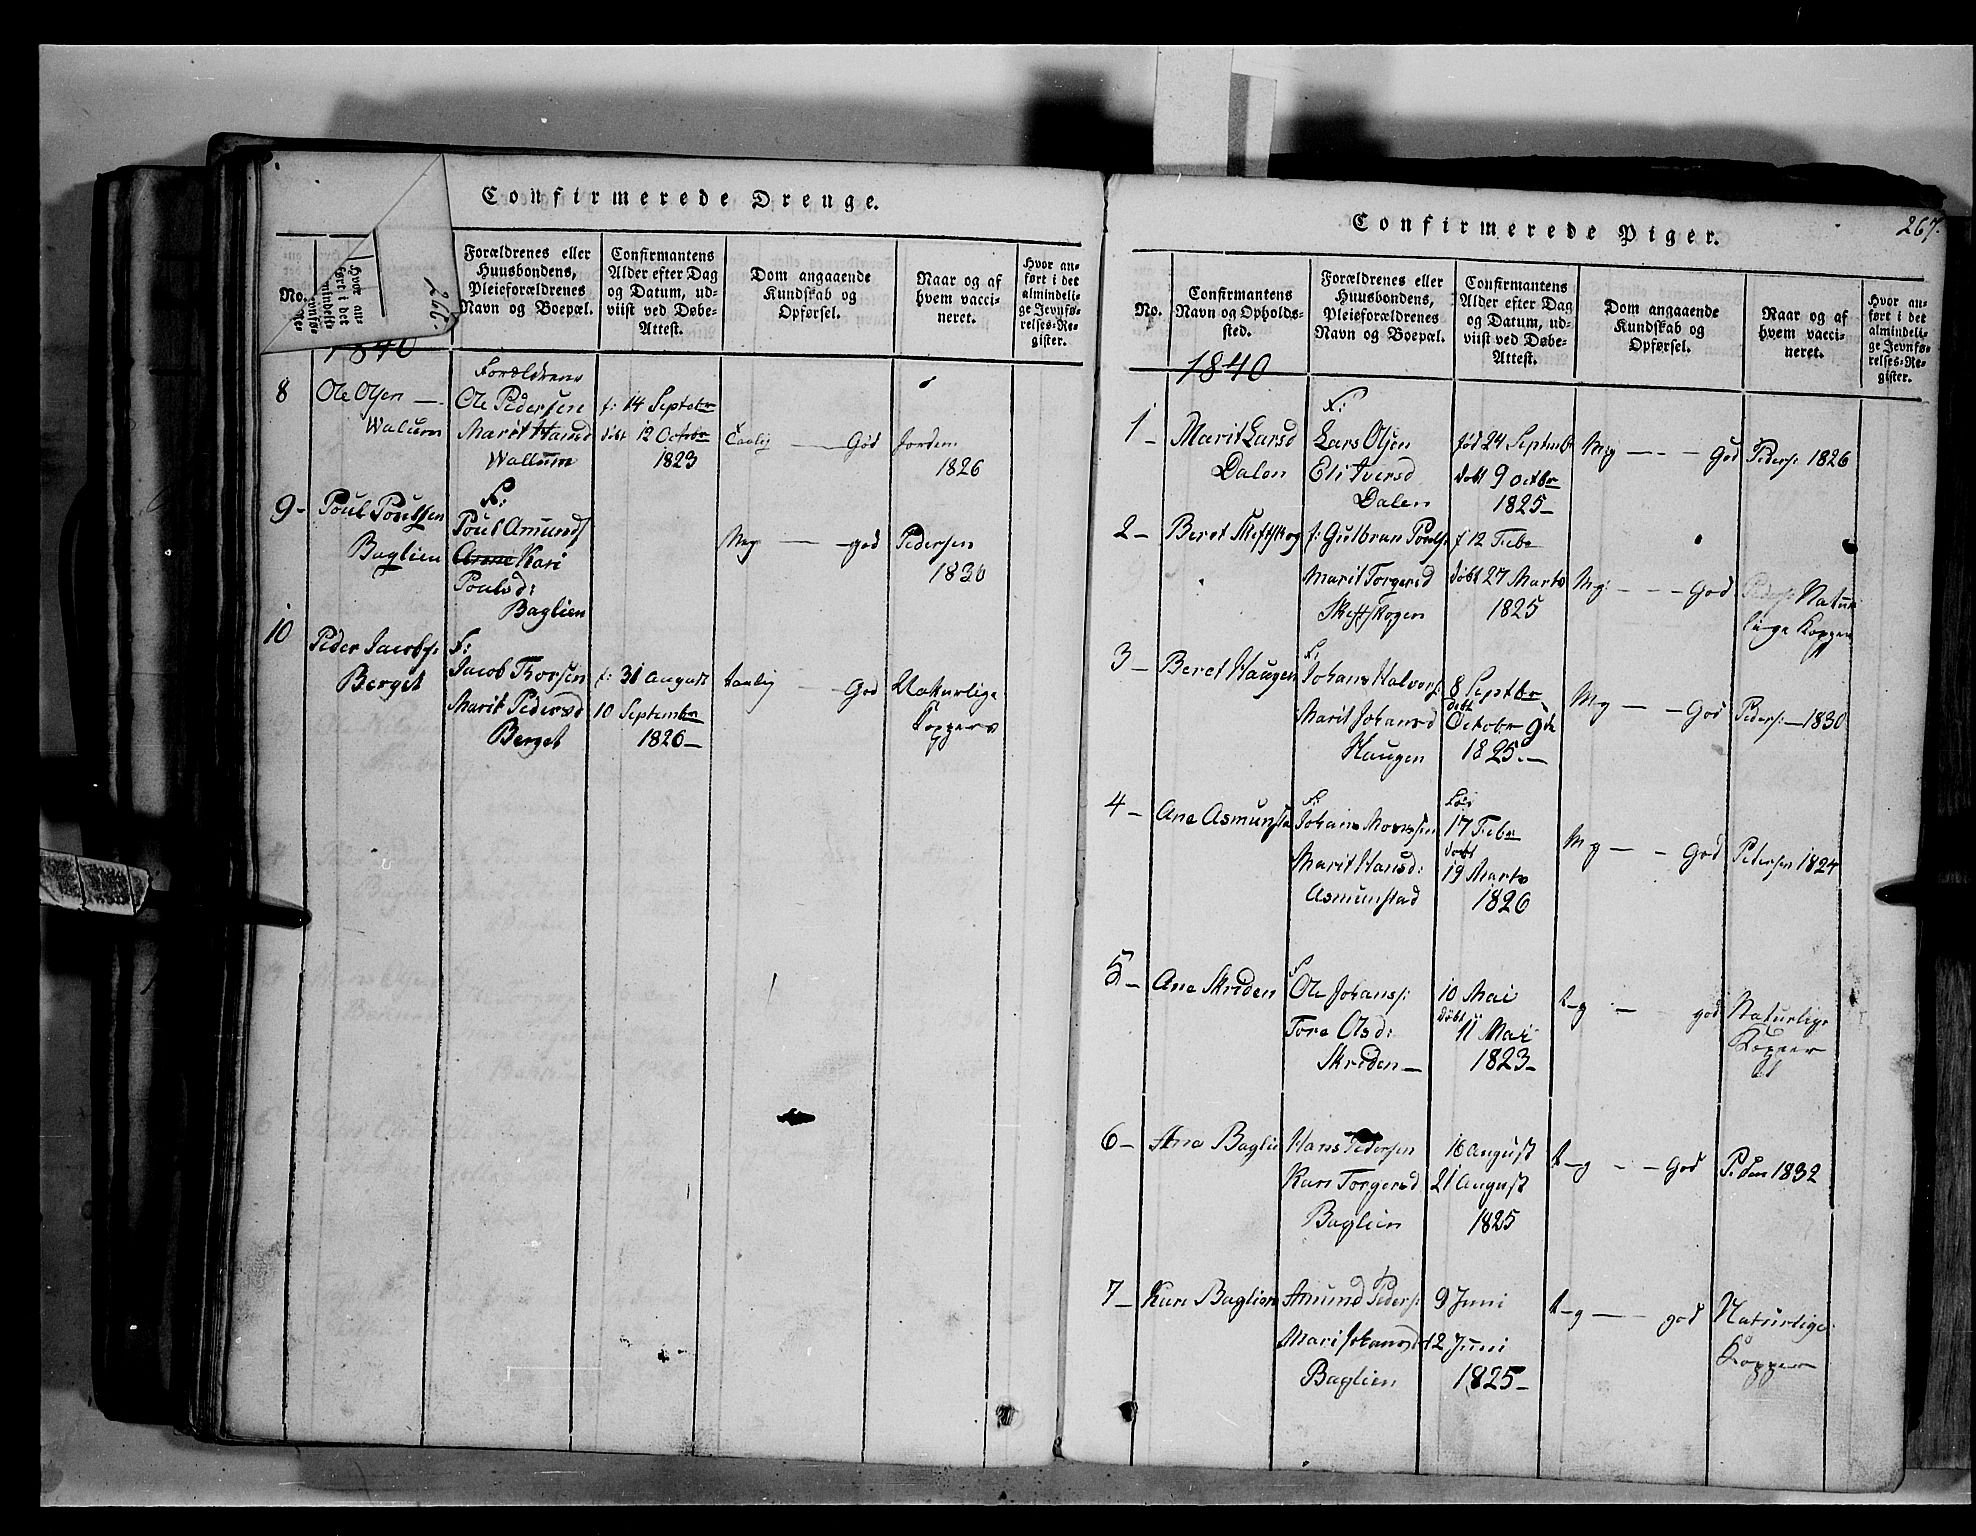 Confirmerede Drenge.
266.
No.
Hvor an-
ført i det
almindelige
Jevnfø-
Forældrenes eller
Huusbondens,
Pleieforældrenes
Navn og Boepæl.
Confirmantens
Alder efter Dag
og Datum, ud-
viist ved Døbe-
Attest.
Dom angaaende
Kundskab og
Opførsel.
Naar og af
hvem vacci-
neret.
Hvor an-
ført i det
almindeli-
ge Jevnfø-
relses-Re-
gister.
1840
8
Ole Olsen —
Walum
Forældrene
Ole Pedersen
Marit Hansd
Wallum
f: 14 Septebr
döbt 12 Octobr
1823
Taalig — God
Jordem
1826
9 -
Poul Poulsen
Baglien
F:
Poul Amunds
Kari
Poulsd:
Baglien
Mg — god
Pedersen
1830
10
Peder Jacobs:
Berget
F:
Jacob Thorsen
Marit Pedersd
Berget
f: 31 August
10 Septembr
1826 —
taalig — God
Naturlige
Kopper
Confirmerede Piger.
267.
No.
Confirmantens
Navn og Opholds-
sted.
Forældrenes eller
Huusbondens,
Pleieforældrenes
Navn og Boepæl.
Confirmantens
Alder efter Dag
og Datum, ud-
viist ved Døbe-
Attest.
Dom angaaende
Kundskab og
Opførsel.
Naar og af
hvem vacci-
neret.
Hvor an-
ført i det
almindeli-
ge Jevnfø-
relses-Re-
gister.
1840
1 -
Marit Larsd
Dalen
F:
Lars Olsen
Eli Iversd
Dalen
fød 24 Septembr
döbt 9 octbr
1825 —
Mg — — God
Peders: 1826
2 -
Beret Skiftskog
f: Gulbran Pouls:
Marit Torgersd
Skiftskogen
f 12 Febr
döbt 27 Marts
1825
Mg: — — God
Natur
lige Kopper
3 -
Beret Haugen
F:
Johans Halvors:
Marit Johansd
Haugen
8 Septbr
döbt
Octobr 9de
1825. —
Mg — — God
Peders: — 1830
4 -
Ane Asmunsta
F:
Johans Monssen
Marit Hansd:
Asmunstad
17 Febr
döbt
19 Marts
1826
Mg — — God
Pedersen 1824
5 -
Ane Skriden
F
Ole Johans:
Tore Olsd:
Skriden —
10 Mai
döbt
11 Mai
1823 —
t-g — — god
Naturlige
Kopper
6 -
Ana Baglie
Hans Pedersen
Kari Torgersd
Baglien
16 August
21 August
1825
t-g — — God
Peders 1832
7 -
Kari Baglien
Amund Peders:
Mari Johansd
Baglien
9 Juni
12 Juni
1825 —
t-g — — god
Naturlige
Kopper